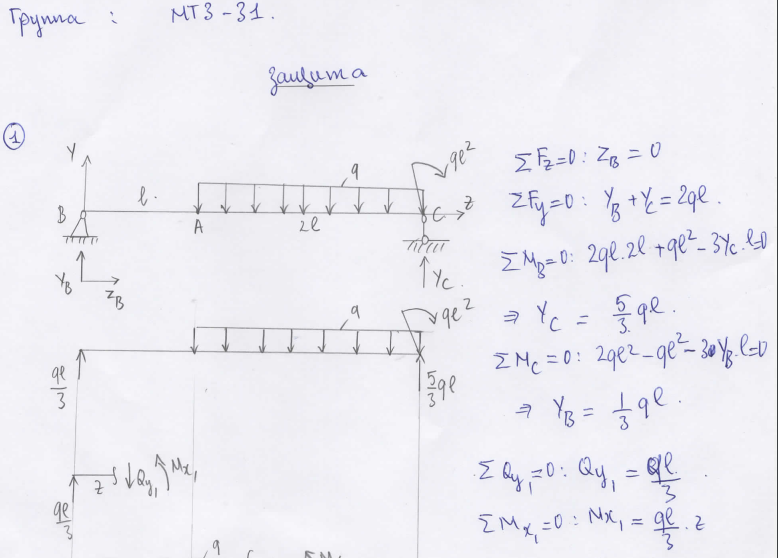 Группа : МТ3-31.
Защита
1
Y
q
ql²
Z
B
l.
A
2l
C
Y_B
Z_B
Y_C
ΣF_z=0: Z_B = 0
ΣF_y=0: Y_B + Y_C = 2ql.
ΣM_B=0: 2ql.2l + ql² - 3Y_C.l=0
⇒ Y_C = 5/3 ql.
ΣM_C=0: 2ql² - ql² - 3 Y_B.l=0
⇒ Y_B = 1/3 ql.
q
ql²
ql/3
5/3 ql
ql/3
z
Q_y₁
M_x₁
ΣQ_y₁=0: Q_y₁ = ql/3.
ΣM_x₁=0: M_x₁ = ql/3 . z
q